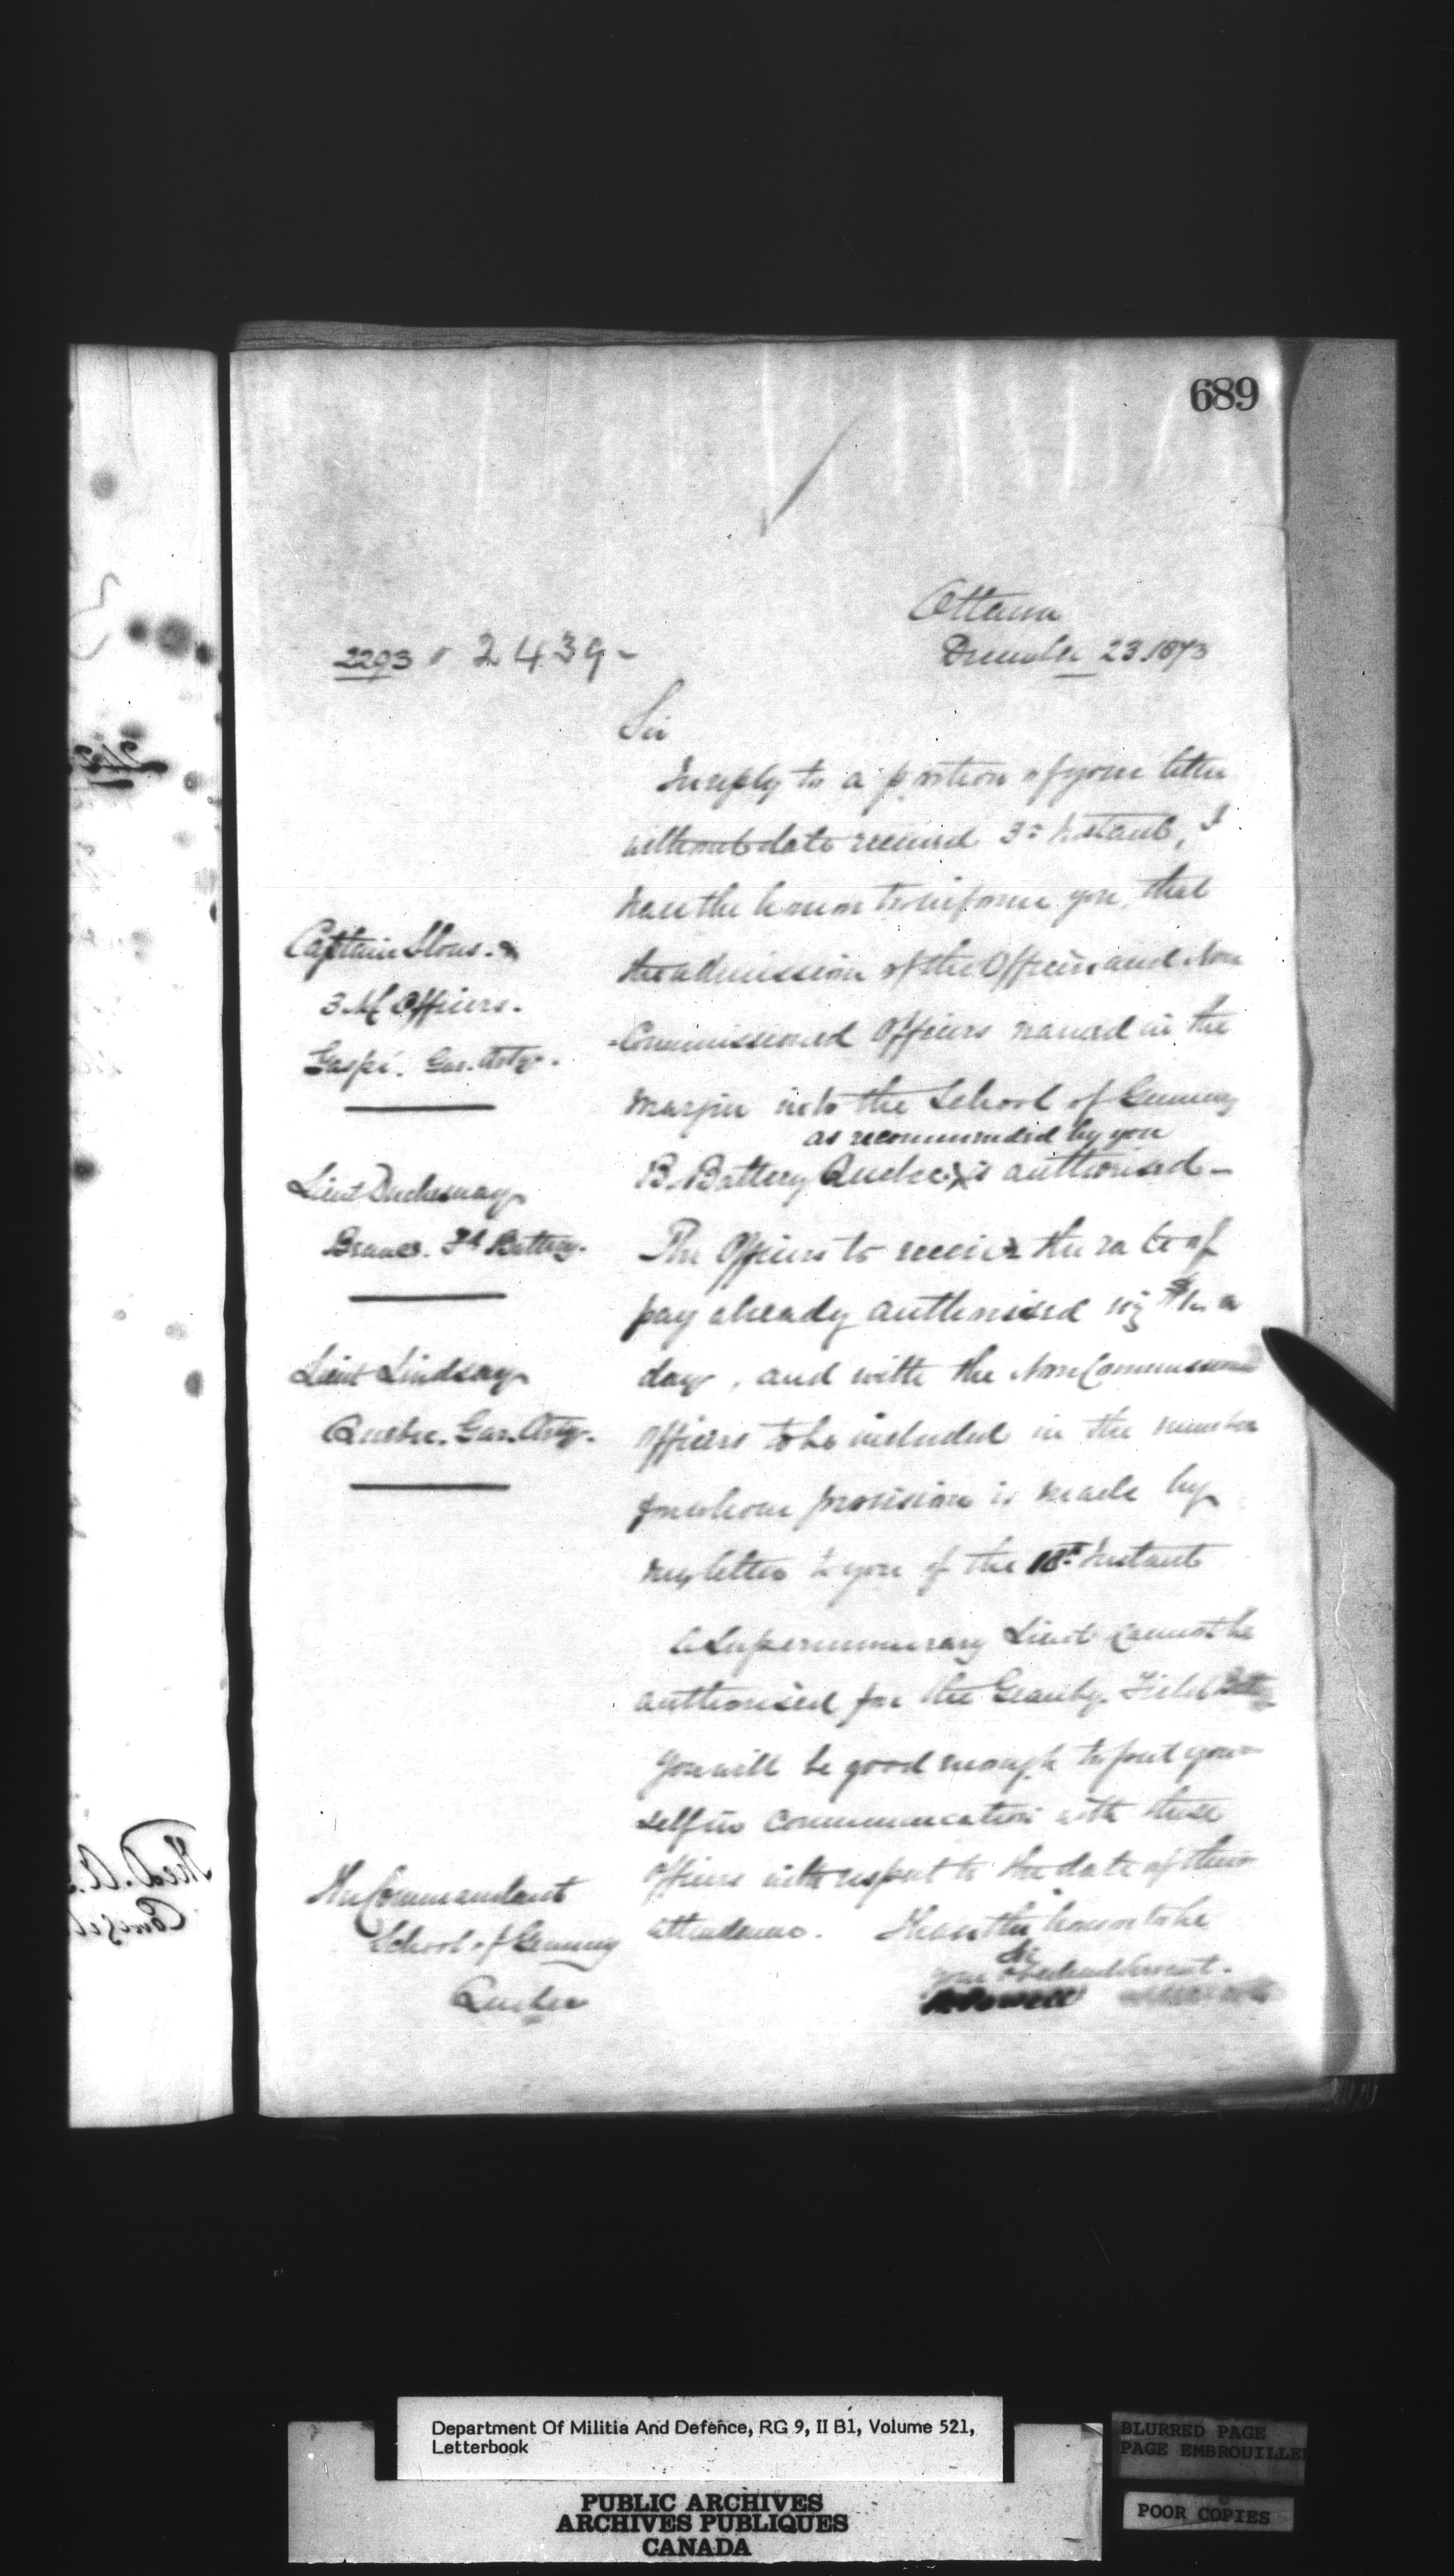 689
Ottawa
2293 2439-
December 23. 1873
Sir
In reply to a portion of your letter
without date received 3d Instant, I
have the honor to inform you, that
the admission of the Officers and Non
-Commissioned Officers named in the
margin into the School of Gunnery
as recommended by you
B. Battery Quebec is authorised-
The Officers to receive the rate of
pay already authorised viz a
day, and with the Non Commissioned
Officers to be included in the number
for whom provision is made by
my letter to you of the 18th Instant
A Supernumerary Lieut cannot be
authorised for the Granby Field Batty
You will be good enough to put your
self in communication with these
Officers with respect to the date of their
attendance. I have the honor to be
Sir
your obedient Servant.
Powell
Captain
3 N.C. Officers.
Gaspé. Gar. Arty.
Lieut Duchesnay
Fd Battery.
Lieut Lindsay
Quebec. Gar. Arty.
The Commandant
School of Gunnery
Quebec
Department Of Militia And Defence, RG 9, II B1, Volume 521,
Letterbook
PUBLIC ARCHIVES
ARCHIVES PUBLIQUES
CANADA
BLURRED PAGE
PAGE EMBROUILLE
POOR COPIES